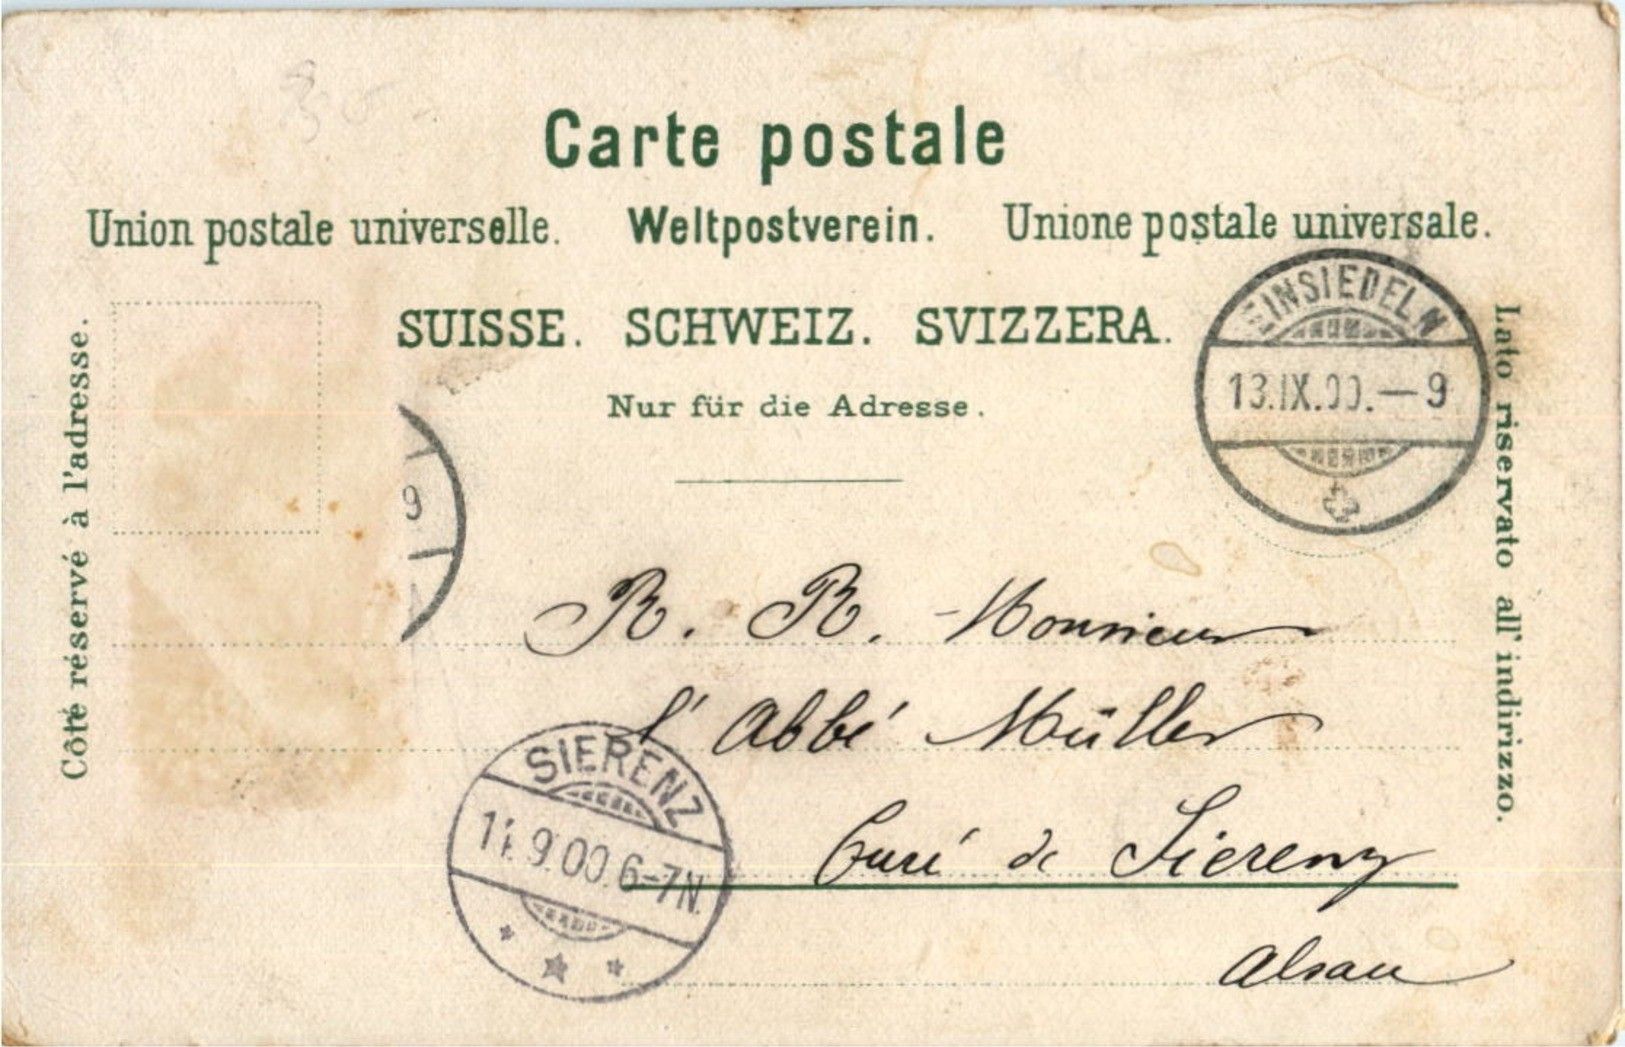 Carte postale
Union postale universelle. Weltpostverein. Unione postale universale.
SUISSE. SCHWEIZ. SVIZZERA.
Nur für die Adresse.
Côté réservé à l'adresse.
Lato riservato all' indirizzo.
EINSIEDELN
13.IX.00.—9
9
R. R. Monsieur
l'Abbé Müller
Curé de Sierenz
Alsace
SIERENZ
9.00.6-7N.